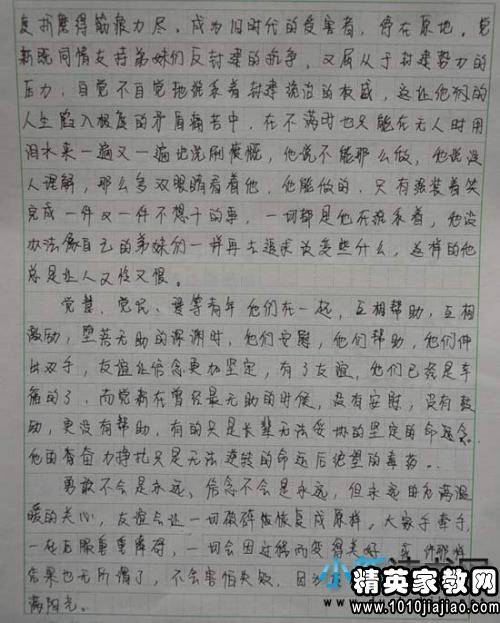 复折磨得筋疲力尽。成为旧时代的受害者,停在原地。觉
新既同情支持弟妹们反封建的抗争,又屈从于封建势力的
压力,自觉不自觉地维系着封建统治的权威,这让他们的
人生陷入极度的矛盾痛苦中,在不满时也只能在无人时用
泪水来一遍又一遍地洗刷愤慨,他说不能那么做,他说没
人理解,那么多双眼睛看着他,他能做的,只有强装着笑
完成一件又一件不想干的事,一切都是他在维系着,他没
办法像自己的弟妹们一样再去追求改变些什么,这样的他
总是让人又怜又恨。
觉慧、觉民、琴等青年他们在一起,互相帮助,互相
激励,坠落无助的深渊时,他们安慰,他们帮助,他们伸
出双手,友谊让信念更加坚定,有了友谊,他们已经是幸
福的了,而觉新在曾经最无助的时候,没有安慰,没有鼓
励,更没有帮助,有的只是长辈无法妥协的坚定的命运念。
他的奋力挣扎只是无法逆转的命运后绝望的毒药。
勇敢不会是永远、信念不会是永远,但永远因为有温
暖的关心,友谊会让一切破碎恢复成原样。大家手牵手,
一起克服重重障碍,一切会因友情而变得美好
结果也无所谓了,不会害怕失败,因为
满阳光。
精英家教网
www.1010jiajiao.com